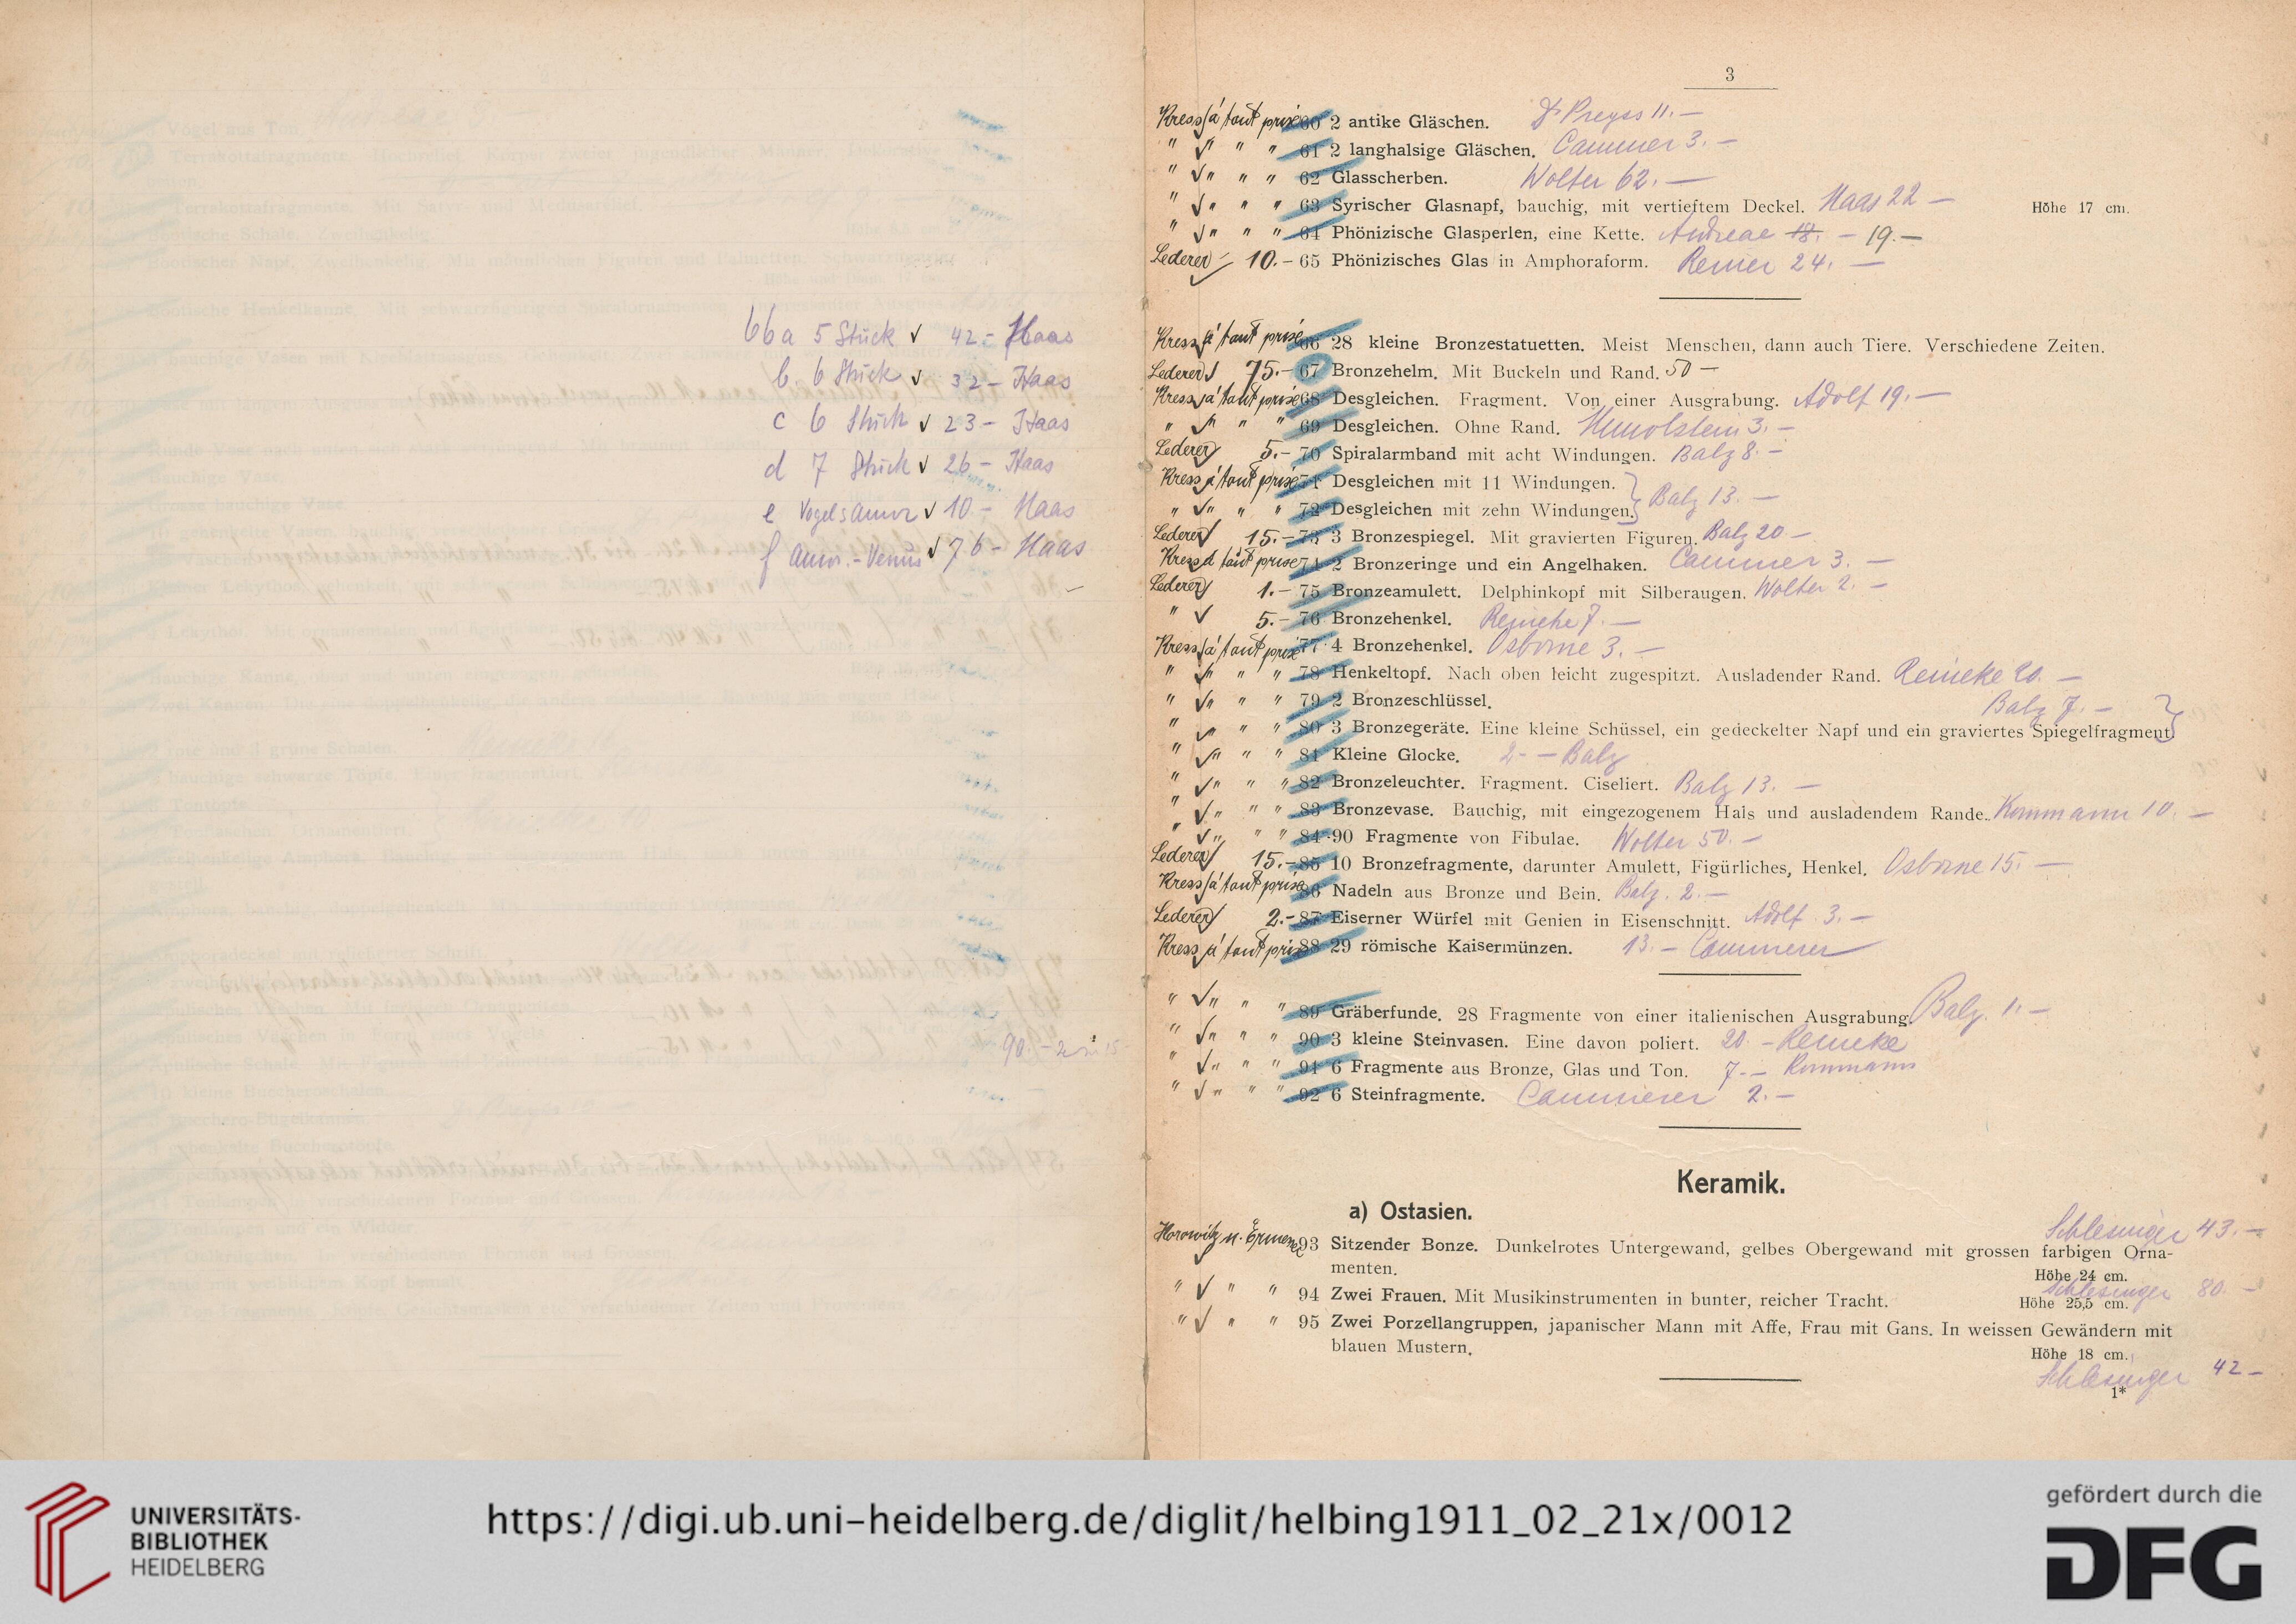 66a 5 Stück √ 42.- Haas
b. 6 Stück √ 32 - Haas
c 6 Stück √ 23 - Haas
d 7 Stück √ 26 - Haas
e √ 10 - Haas
f Amor.-Venus √ 76 - Haas
90.-
3
Kress à tout prix 60 2 antike Gläschen. Dr Preyss 11.—
" √" " " 61 2 langhalsige Gläschen. Cammer 3.—
" √" " " 62 Glasscherben. Wolter 62.—
" √" " " 63 Syrischer Glasnapf, bauchig, mit vertieftem Deckel. Haas 22 — Höhe 17 cm.
" √" " " 64 Phönizische Glasperlen, eine Kette. Andreae 18.— 19.—
Lederer √ 10.- 65 Phönizisches Glas in Amphoraform. 24.—
Kress à tout prix 66 28 kleine Bronzestatuetten. Meist Menschen, dann auch Tiere. Verschiedene Zeiten.
Lederer √ 75.- 67 Bronzehelm. Mit Buckeln und Rand. 50 —
Kress à tout prix 68 Desgleichen. Fragment. Von einer Ausgrabung. Adolf 19.—
" √" " " 69 Desgleichen. Ohne Rand. 3.—
Lederer √ 5.- 70 Spiralarmband mit acht Windungen. Balz 8.—
Kress à tout prix 71 Desgleichen mit 11 Windungen.
" √" " " 72 Desgleichen mit zehn Windungen. } Balz 13.—
Lederer √ 15.- 73 3 Bronzespiegel. Mit gravierten Figuren. Balz 20 —
Kress à tout prix 74 2 Bronzeringe und ein Angelhaken. Cammer 3.—
Lederer √ 1.- 75 Bronzeamulett. Delphinkopf mit Silberaugen. Wolter 2.—
" √ 5.- 76 Bronzehenkel. Reineke 7.—
Kress à tout prix 77 4 Bronzehenkel. Osborne 3.—
" √" " " 78 Henkeltopf. Nach oben leicht zugespitzt. Ausladender Rand. Reineke 20.—
" √" " " 79 2 Bronzeschlüssel. Balz 7.—
" √" " " 80 3 Bronzegeräte. Eine kleine Schüssel, ein gedeckelter Napf und ein graviertes Spiegelfragment. }
" √" " " 81 Kleine Glocke. 2.— Balz
" √" " " 82 Bronzeleuchter. Fragment. Ciseliert. Balz 13.—
" √" " " 83 Bronzevase. Bauchig, mit eingezogenem Hals und ausladendem Rande. Kommann 10.—
" √" " " 84 90 Fragmente von Fibulae. Wolter 50.—
Lederer √ 15.- 85 10 Bronzefragmente, darunter Amulett, Figürliches, Henkel. Osborne 15.—
Kress à tout prix 86 Nadeln aus Bronze und Bein. Balz. 2.—
Lederer √ 2.- 87 Eiserner Würfel mit Genien in Eisenschnitt. Adolf 3.—
Kress à tout prix 88 29 römische Kaisermünzen. 13.— Cammerer
" √" " " 89 Gräberfunde. 28 Fragmente von einer italienischen Ausgrabung. Balz. 1.—
" √" " " 90 3 kleine Steinvasen. Eine davon poliert. 20.— Reineke
" √" " " 91 6 Fragmente aus Bronze, Glas und Ton. 7.— Kommann
" √" " " 92 6 Steinfragmente. Cammerer 2.—
Keramik.
a) Ostasien.
Schlesinger 43.—
Horowitz u. 93 Sitzender Bonze. Dunkelrotes Untergewand, gelbes Obergewand mit grossen farbigen Orna-
menten. Höhe 24 cm.
" √ " " 94 Zwei Frauen. Mit Musikinstrumenten in bunter, reicher Tracht. Höhe 25,5 cm. Schlesinger 80.—
" √ " " 95 Zwei Porzellangruppen, japanischer Mann mit Affe, Frau mit Gans. In weissen Gewändern mit
blauen Mustern. Höhe 18 cm.
Schlesinger 42 —
1*
UNIVERSITÄTS-
BIBLIOTHEK
HEIDELBERG
https://digi.ub.uni-heidelberg.de/diglit/helbing1911_02_21x/0012
gefördert durch die
DFG